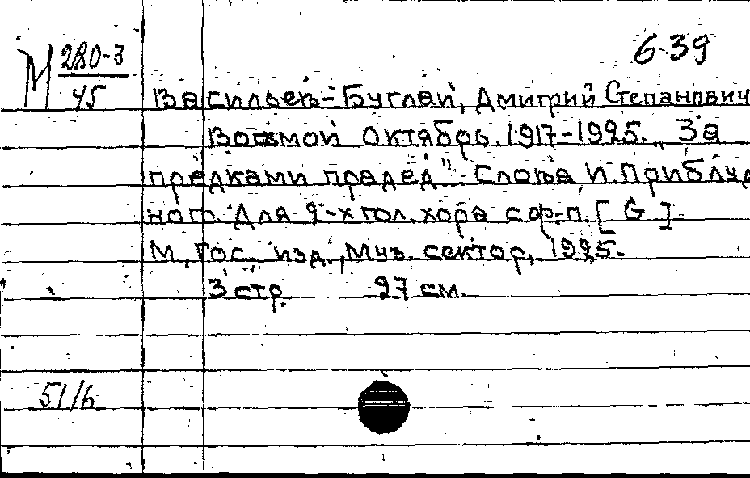 М 280-3 6-39
45
Васильев-Буглай, Дмитрий Степанович
Восьмой Октябрь. 1917-1925. "За
предками прадед". Слова И. Приблуд-
ного. Для 2-х гол. хора с ф-п. [G]
М., Гос. изд., Муз. сектор, 1925.
3 стр. 27 см.
51/6